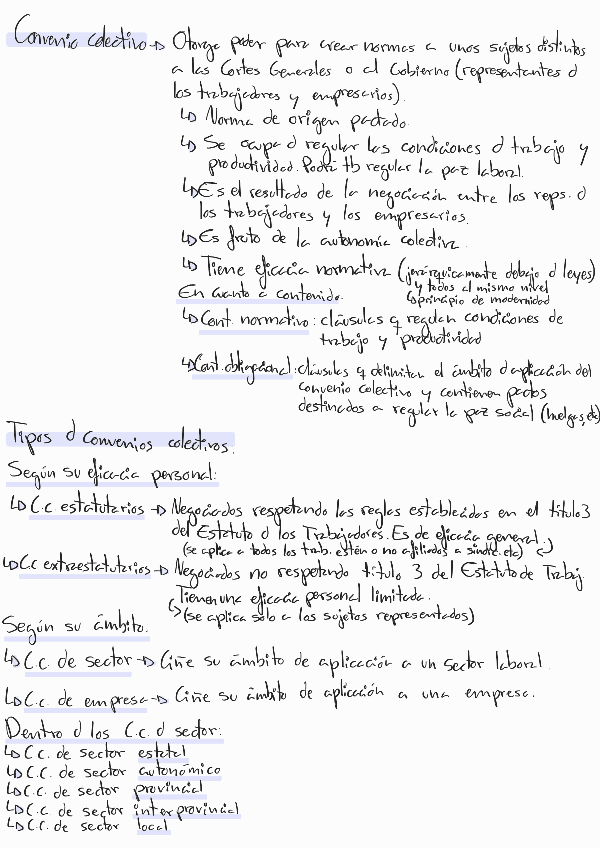 Convenio colectivo → Otorga poder para crear normas a unos sujetos distintos
a las Cortes Generales o al Gobierno (representantes d
los trabajadores y empresarios).
↳ Norma de origen pactado.
↳ Se ocupa d regular las condiciones d trabajo y
productividad. Podrá tb regular la paz laboral.
↳ Es el resultado de la negociación entre los reps. d
los trabajadores y los empresarios.
↳ Es fruto de la autonomía colectiva.
↳ Tiene eficacia normativa (jerárquicamente debajo d leyes)
y todos al mismo nivel
↳ principio de modernidad
En cuanto a contenido.
↳ Cont. normativo: cláusulas q regulan condiciones de
trabajo y productividad
↳ Cont. obligacional: cláusulas q delimitan el ámbito d aplicación del
convenio colectivo y contienen pactos
destinados a regular la paz social (huelgas, etc)
Tipos d convenios colectivos.
Según su eficacia personal:
↳ C.c estatutarios → Negociados respetando las reglas establecidas en el título 3
del Estatuto d los Trabajadores. Es de eficacia general.
(se aplica a todos los trab. estén o no afiliados a sindic. etc)
↳ C.c extraestatutarios → Negociados no respetando título 3 del Estatuto de Trabaj.
Tienen una eficacia personal limitada.
↳ (se aplica sólo a los sujetos representados)
Según su ámbito.
↳ C.c. de sector → Ciñe su ámbito de aplicación a un sector laboral.
↳ C.c. de empresa → Ciñe su ámbito de aplicación a una empresa.
Dentro d los C.c. d sector:
↳ C.c. de sector estatal
↳ C.C. de sector autonómico
↳ C.c. de sector provincial
↳ C.c. de sector interprovincial
↳ C.C. de sector local